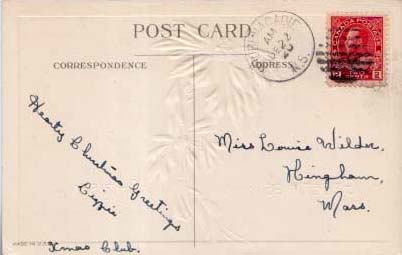 POST CARD
CORRESPONDENCE
ADDRESS
AM
DE 22
20
N.S.
CANADA POSTAGE
2
2
CENTS
Hearty Christmas Greetings
Lizzie
Xmas Club.
Miss Louise Wilder,
Hingham,
Mass.
MADE IN U.S.A.